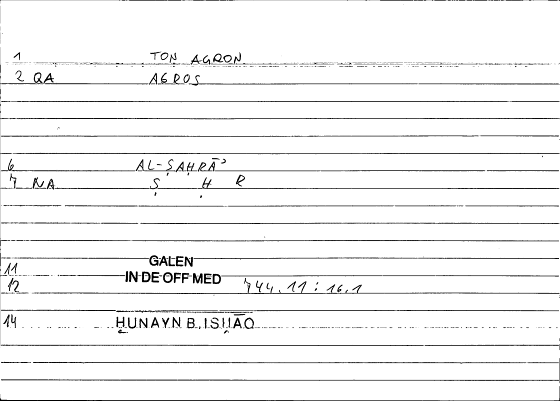 1 TON AGRON
2 QA AGROS
6 AL-ṢAḤRĀʾ
7 NA Ṣ Ḥ R
11 GALEN
IN DE OFF MED
12 744.11 : 16.1
14 ḤUNAYN B. ISḤĀQ